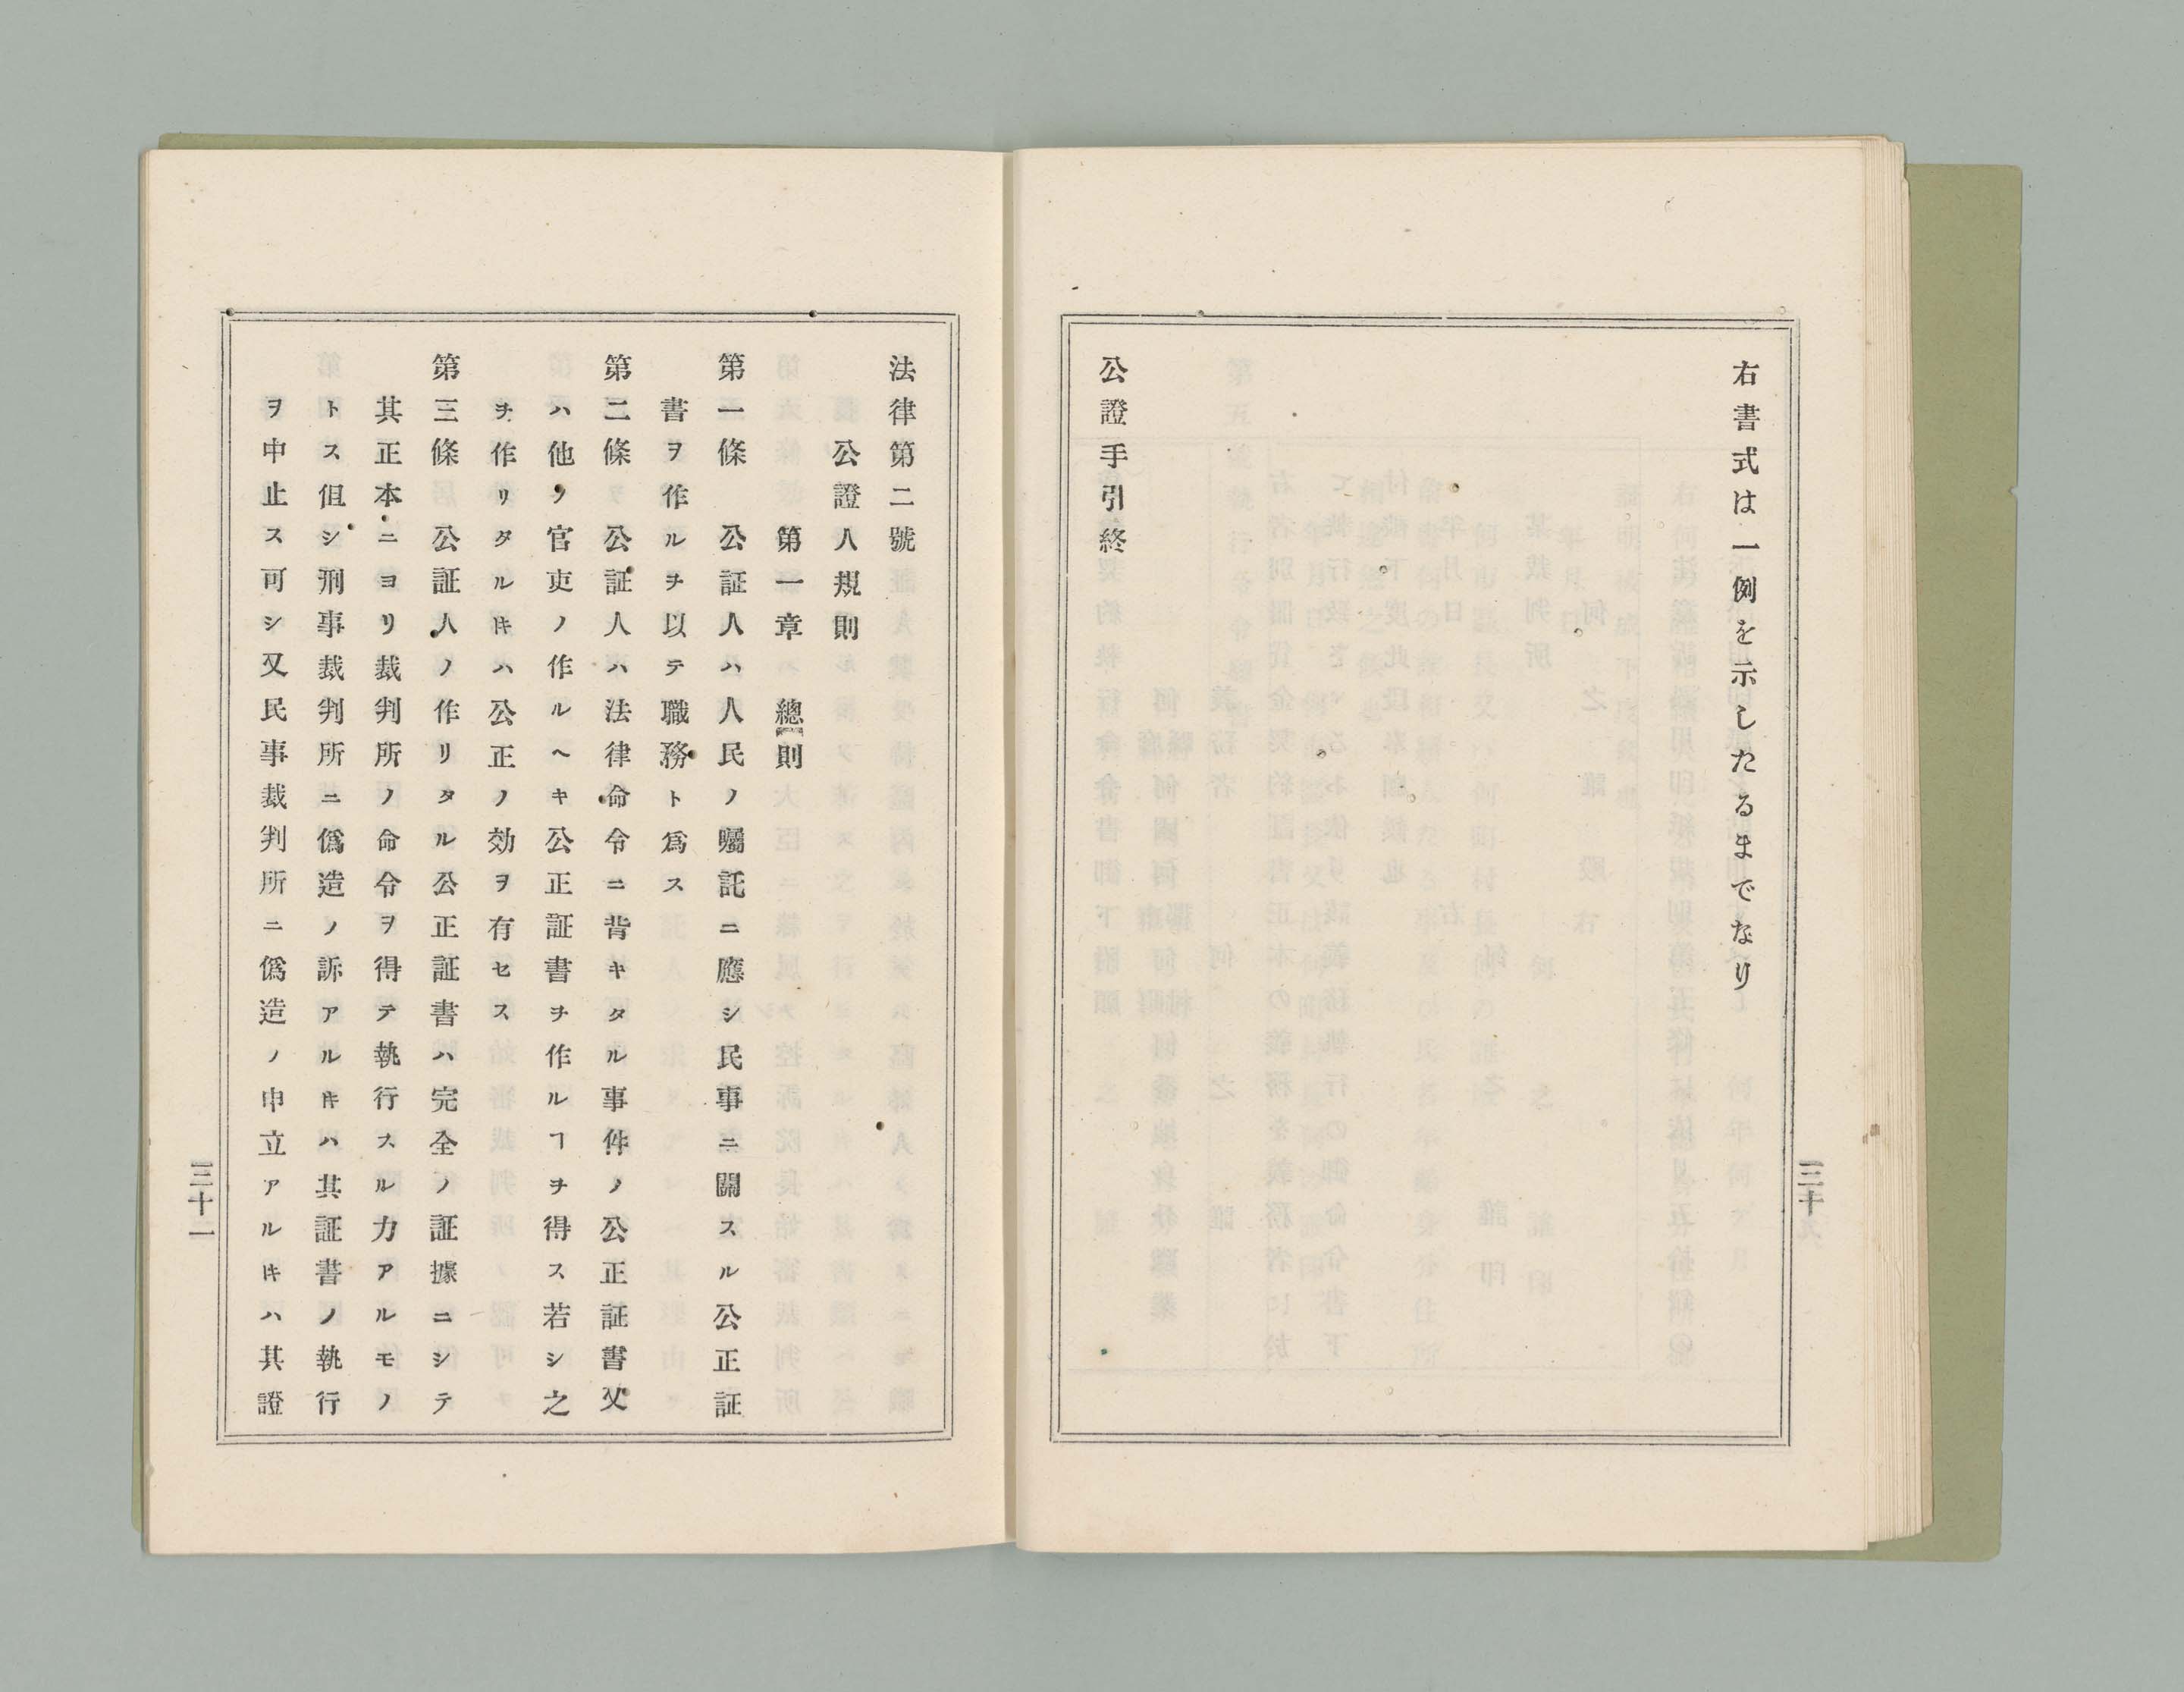 右書式は一例を示したるまでなり
公證手引終
三十
法律第二號
公證人規則
第一章 總則
第一條 公証人ハ人民ノ囑託ニ應シ民事ニ關スル公正証
書ヲ作ルヲ以テ職務ト爲ス
第二條 公証人ハ法律命令ニ背キタル事件ノ公正証書又
ハ他ノ官吏ノ作ルヘキ公正証書ヲ作ルヿヲ得ス若シ之
ヲ作リタルキハ公正ノ効ヲ有セス
第三條 公証人ノ作リタル公正証書ハ完全ノ証據ニシテ
其正本ニヨリ裁判所ノ命令ヲ得テ執行スル力アルモノ
トス伹シ刑事裁判所ニ僞造ノ訴アルキハ其証書ノ執行
ヲ中止ス可シ又民事裁判所ニ僞造ノ申立アルキハ其證
三十一